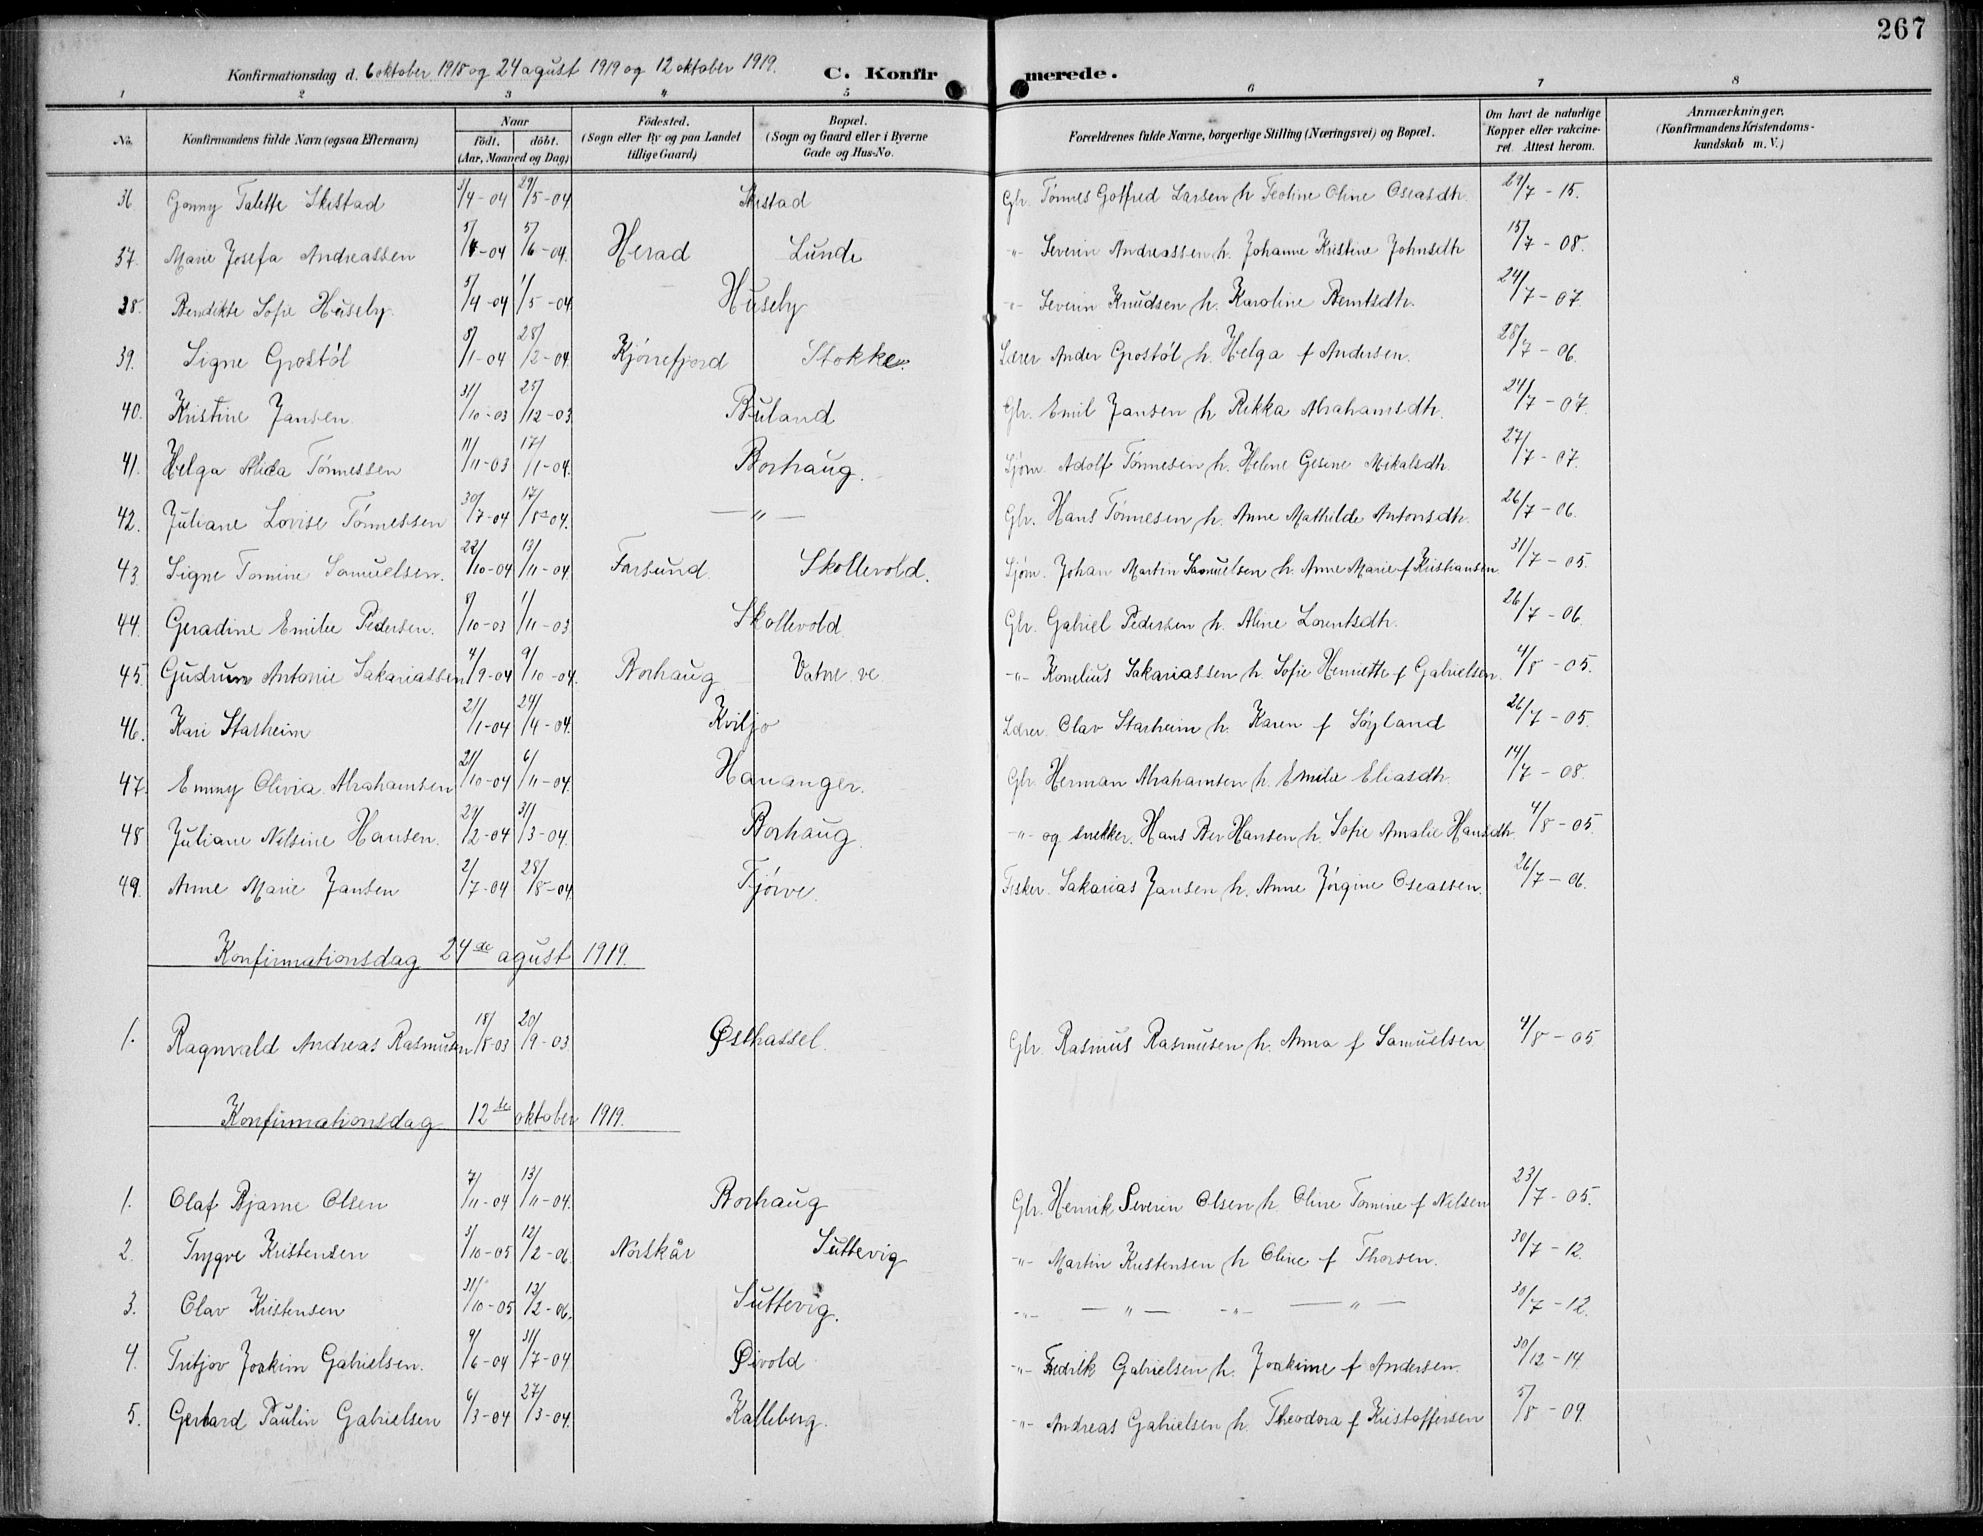 267
Konfirmationsdag d. 6 oktober 1918 og 24 agust 1919 og 12 oktober 1919. C. Konfirmerede.
1 2 3 4 5 6 7 8
No. Konfirmandens fulde Navn (ogsaa Efternavn) Naar født. døbt. (Aar, Maaned og Dag) Fødested. (Sogn eller By og paa Landet tillige Gaard) Bopæl. (Sogn og Gaard eller i Byerne Gade og Hus-No. Forældrenes fulde Navne, borgerlige Stilling (Næringsvei) og Bopæl. Om havt de naturlige Kopper eller vakcineret. Attest herom. Anmærkninger. (Konfirmandens Kristendomskundskab m. V.)
36. Gonny Talette Skistad 3/4-04 29/5-04 Skistad Gbr. Tønnes Gotfred Larsen h. Teoline Oline Oseasdtr. 29/7-15.
37. Marie Josefa Andreassen 5/4-04 5/6-04. Herad Lunde -"- Severin Andreassen h. Johanne Kristine Johnsdtr 15/7-08.
38. Bendikte Sofie Huseby 5/4-04 1/5-04 Huseby -"- Severin Knudsen h. Karoline Berntsdtr. 24/7-07.
39. Signe Grostøl 8/1-04 28/2-04 Kjørrefjord Stokke. Lærer Ander Grostøl h. Helga f Andersen. 28/7-06.
40. Kristine Jansen 31/10-03 25/12-03 Buland Gbr. Emil Jansen h. Rikka Abrahamsdtr. 24/7-07.
41. Helga Alida Tønnessen 11/11-03 17/1-04. Borhaug. Sjøm. Adolf Tønnesen h. Helene Gesine Mikalsdtr. 27/7-07.
42. Juliane Lovise Tønnessen 30/7-04 17/8-04. —"— Gbr. Hans Tønnesen h. Anne Mathilde Antonsdtr. 26/7-06.
43. Signe Tomine Samuelsen. 22/10-04 13/11-04. Farsund. Skollevold. Sjøm. Johan Martin Samuelsen h. Anne Marie f Kristiansen. 31/7-05.
44. Geradine Emilie Pedersen. 8/10-03 1/11-03 Skollevold. Gbr. Gabriel Pedersen h. Aline Lorentsdtr. 26/7-06.
45. Gudrun Antonie Sakariassen 4/9-04 9/10-04. Borhaug Vatne -"- Konelius Sakariassen h. Sofie Henriette f Gabrielsen. 4/8-05.
46. Kari Starheim 21/1-04 24/4-04. Kviljo Lærer. Olav Starheim h. Karen f Søyland 26/7-05.
47. Emmy Olivia Abrahamsen 21/10-04 6/11-04. Hananger. Gbr. Herman Abrahamsen h. Emilie Eliasdtr. 14/7-08.
48 Juliane Nilsine Hansen. 24/2-04 31/3-04. Borhaug. -"- og snekker. Hans Ber Hansen h. Sofie Amalie Hansdtr. 4/8-05.
49. Anne Marie Jansen 2/7-04 28/8-04 Tjørve. Fisker. Sakarias Jansen h. Anne Jørgine Oseassen. 26/7-06.
Konfirmationsdag 24de agust 1919.
1. Ragnvald Andreas Rasmusen 18/8-03 20/9-03 Østhassel. Gbr. Rasmus Rasmusen h. Anna f Samuelsen 4/8-05
Konfirmationsdag 12te oktober 1919.
1. Olaf Bjarne Olsen 7/11-04 13/11-04. Borhaug Gbr. Henrik Severin Olsen h. Oline Tomine f Nilsen 23/7-05.
2. Trygve Kristensen 31/10-05 12/2-06 Norskår Suttevig -"- Martin Kristensen h Oline f Thorsen. 30/7-12.
3. Olav Kristensen 31/10-05 12/2-06. Suttevig. -"- —"— -"- —"— 30/7-12.
4. Tritjov Joakim Gabrielsen. 9/6-04 31/7-04 Øivold -"- Fredrik Gabrielsen h. Joakime f Andersen. 30/12-14
5. Gerhard Paulin Gabrielsen 6/3-04 27/3-04. Kalleberg. -"- Andreas Gabrielsen h. Theodora f Kristoffersen 5/8-09.